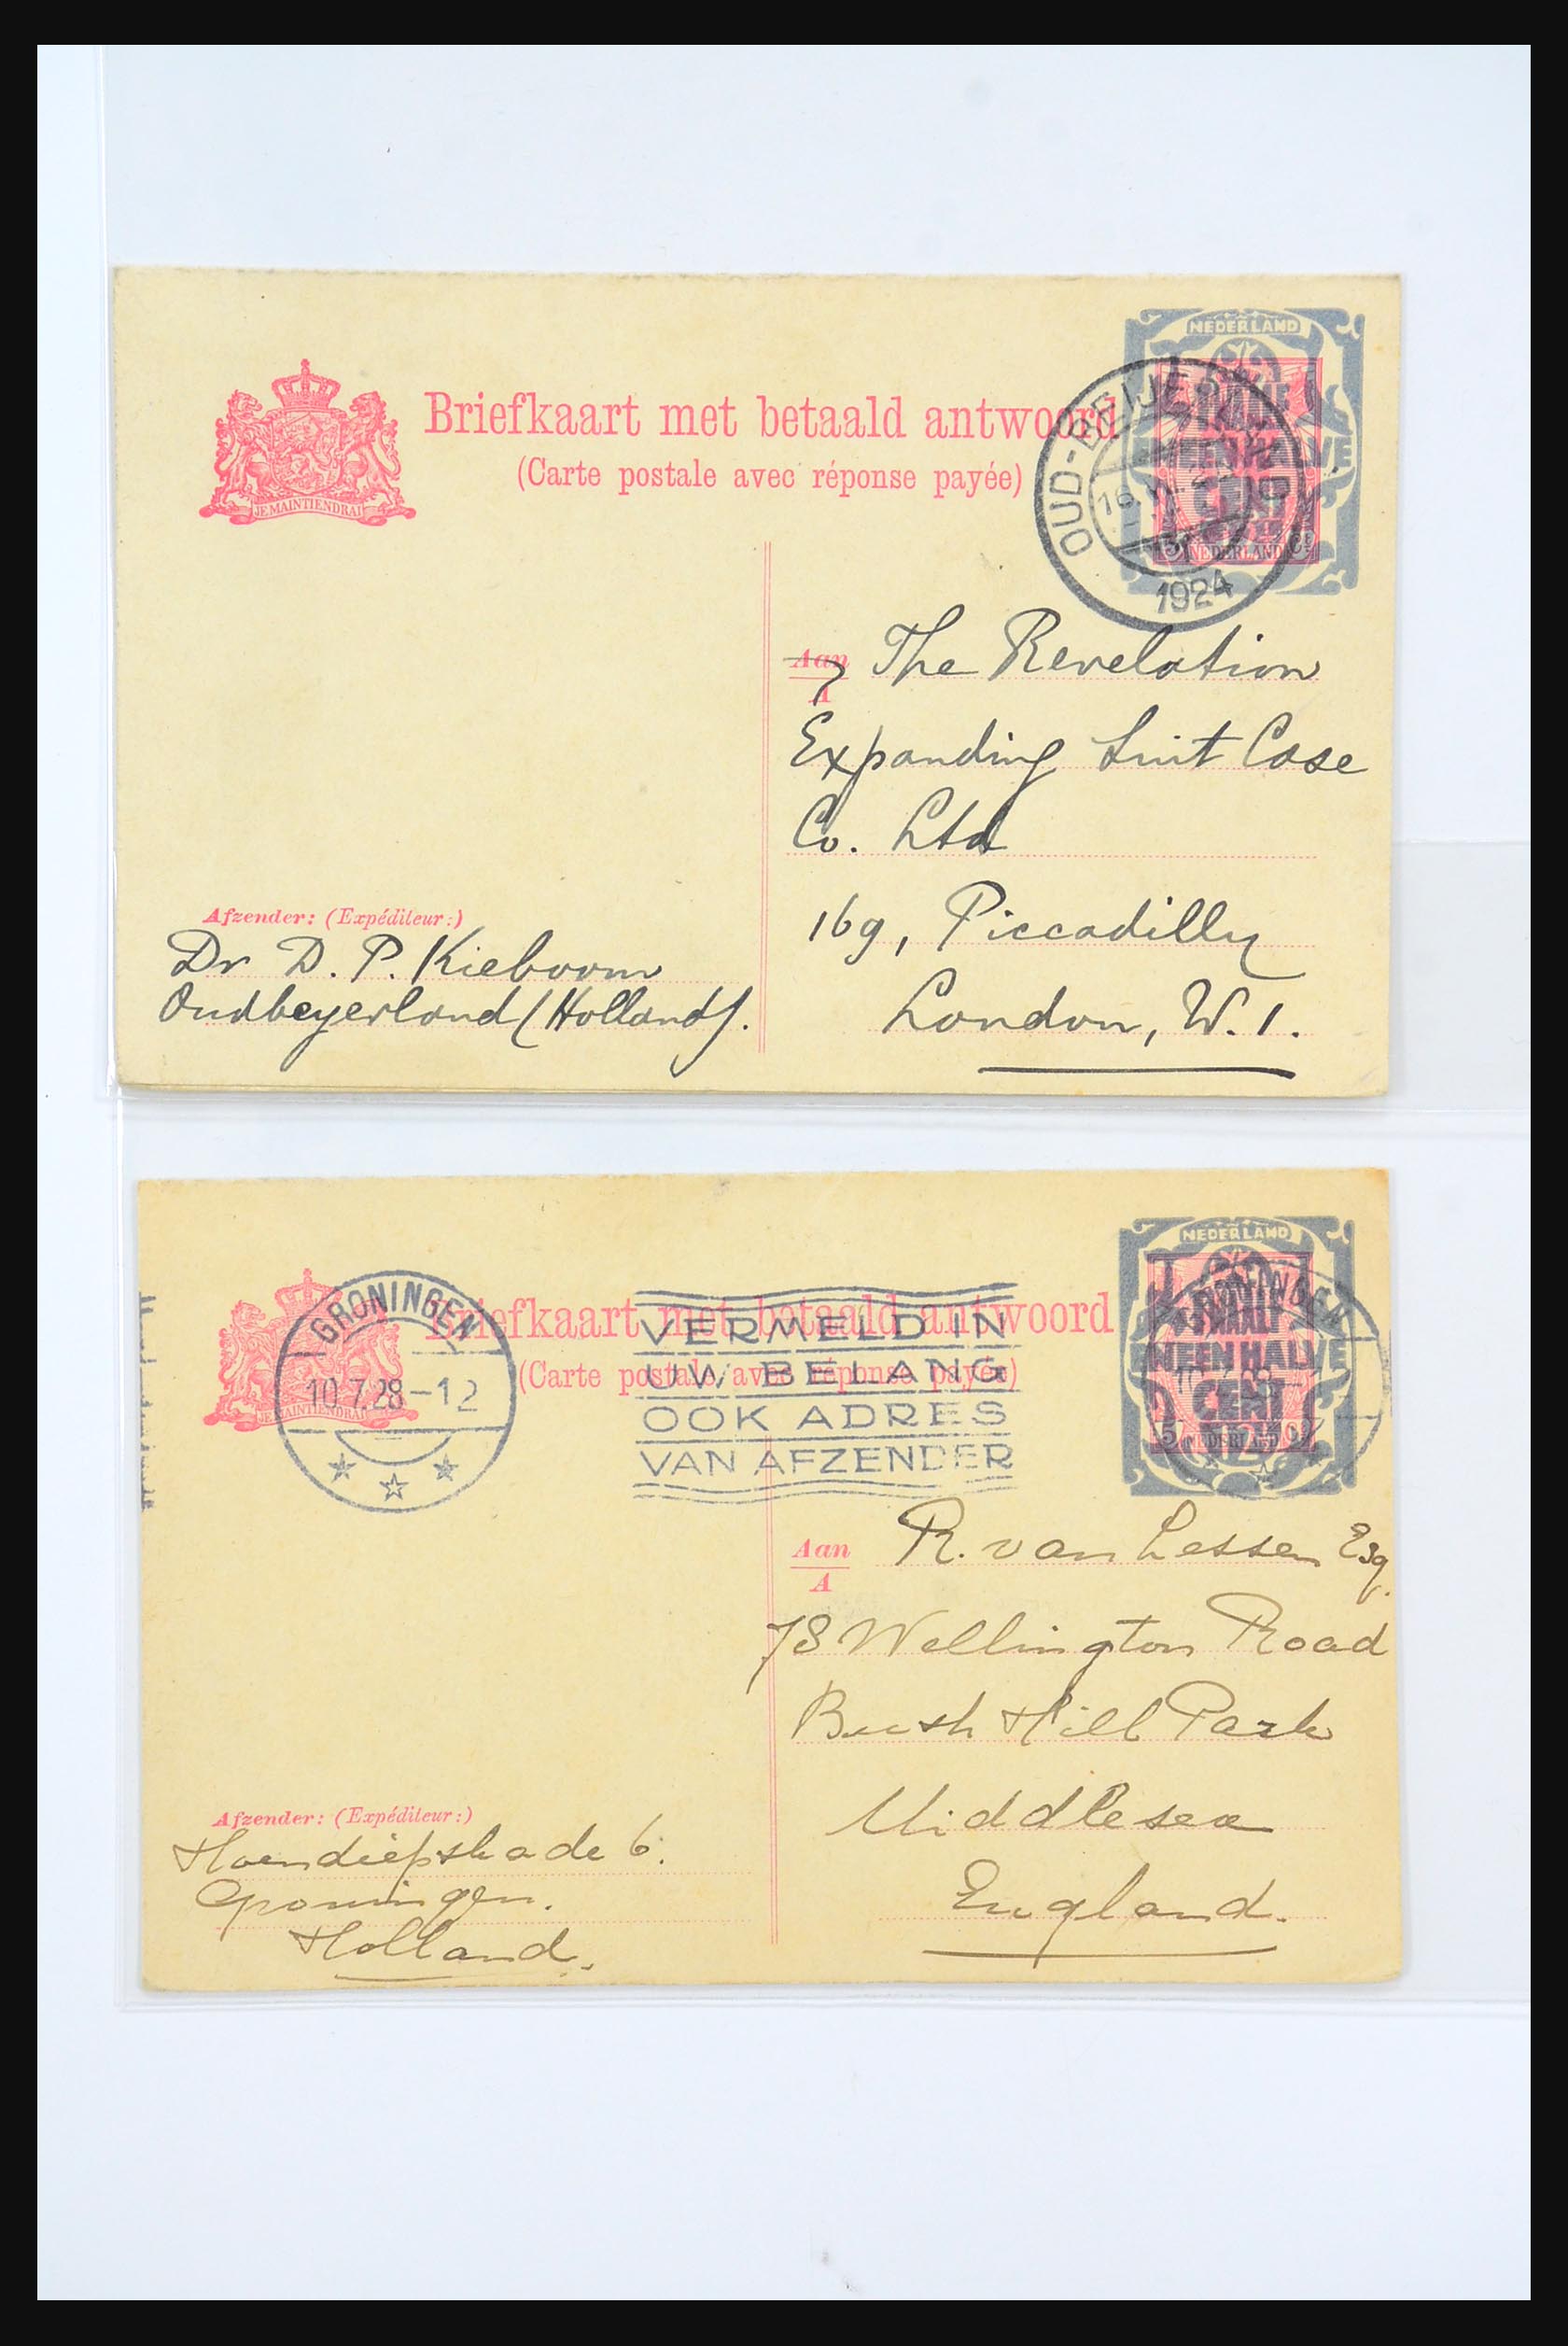 NEDERLAND
Briefkaart met betaald antwoord
(Carte postale avec réponse payée)
JE MAINTIENDRAI
CENT
5 NEDERLAND Ct
OUD-BEIJE
1924
Aan
A
The Revelation
Expanding Suit Case
Co. Ltd
169, Piccadilly
London, W. 1.
Afzender: (Expéditeur:)
Dr D. P. Kieboom
Oudbeyerland (Holland).
NEDERLAND
Briefkaart met betaald antwoord
(Carte postale avec réponse payée)
JE MAINTIENDRAI
GRONINGEN
10.7.28-12
VERMELD IN
UW BELANG
OOK ADRES
VAN AFZENDER
TWAALF
EN EEN HALVE
CENT
5 NEDERLAND Ct
Aan
A
R. van Lessen Esq.
78 Wellington Road
Bush Hill Park
Middlesex
England.
Afzender: (Expéditeur:)
Hoendiepskade 6.
Groningen.
Holland.